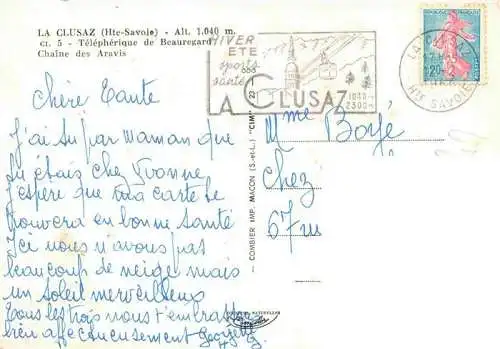 LA CLUSAZ (Hte-Savoie) - Alt. 1.040 m.
CL. 5 - Téléphérique de Beauregard
Chaîne des Aravis
HIVER
ETE
sports
santé
LA CLUSAZ
1040-
2300m
LA CLUSAZ
20-
HTE SAVOIE
Chère Tante
J'ai su par maman que
tu étais chez Yvonne
j'espère que ma carte te
trouvera en bonne santé
Ici nous n'avons pas
beaucoup de neige mais
un soleil merveilleux
Tous les trois nous t'embrassons
bien affectueusement Georgette
COMBIER IMP. MACON (S.-et-L.) "CIM"
Mme Boyé
chez